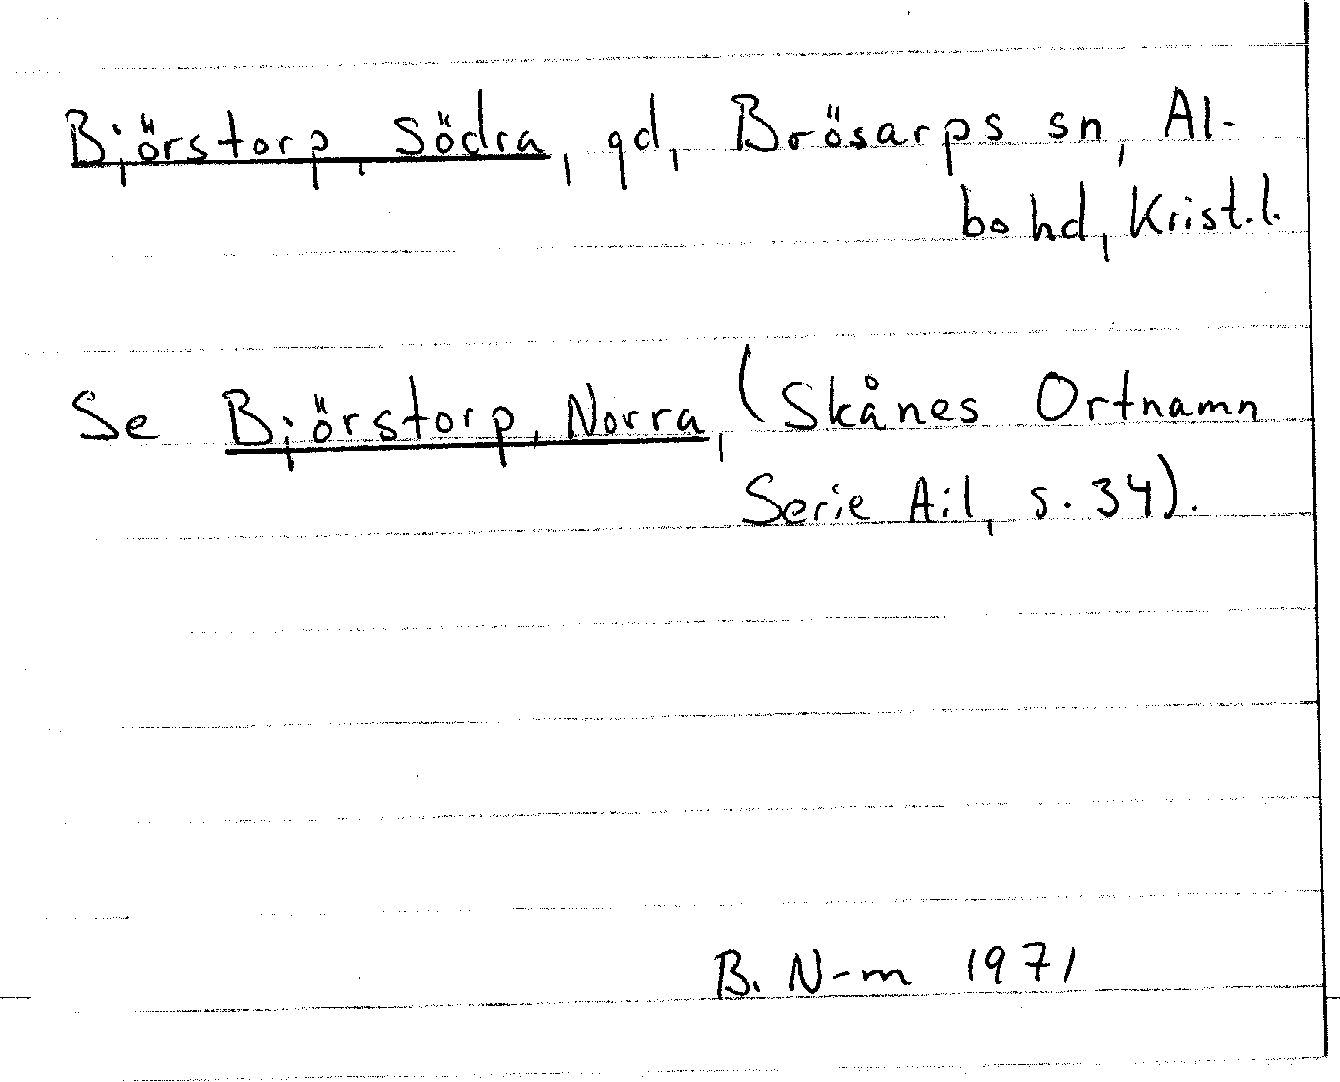 Björstorp, Södra, gd, Brösarps sn, Al-
bo hd, Krist.l.
Se Björstorp, Norra, (Skånes Ortnamn
Serie A:1, s. 34).
B. N-m 1971